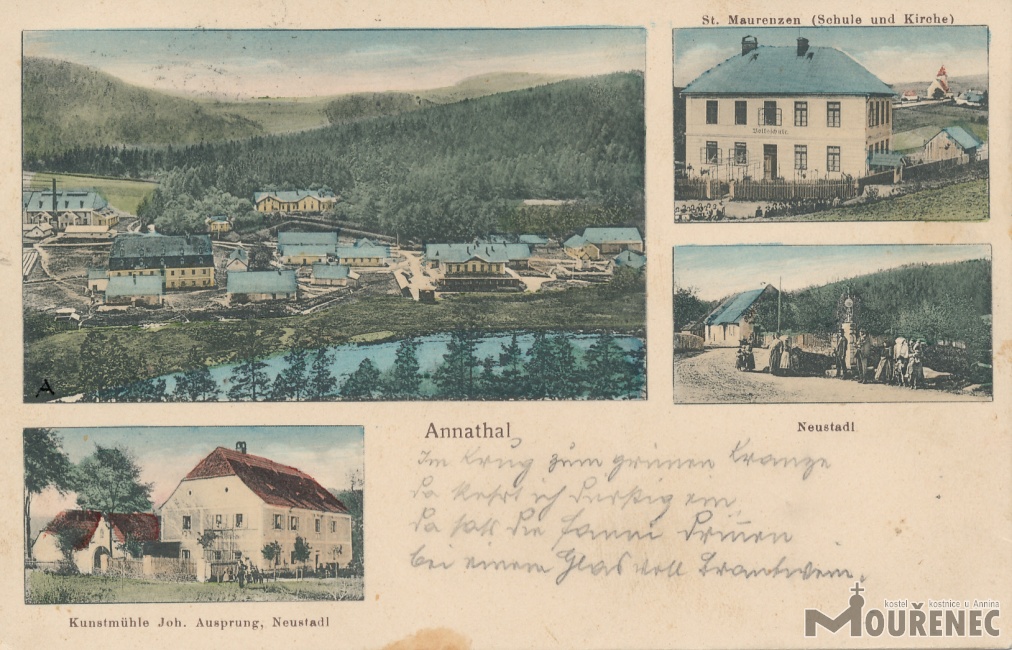 St. Maurenzen (Schule und Kirche)
Volksschule.
A
Annathal
Neustadl
Im Krug zum grünen Kranze
da kehrt ich durstig ein,
da saß die Fanni drinnen
bei einem Glas voll Brantwein.
Kunstmühle Joh. Ausprung, Neustadl
kostel kostnice u Annina
MOUŘENEC